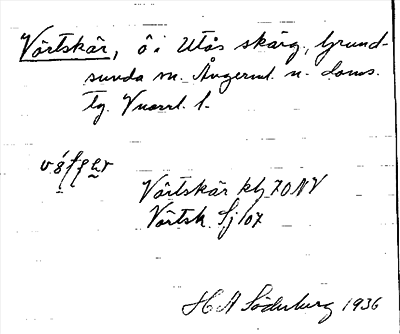 Vårtskär, ö i Utås skärg., Grund-
sunda sn. Ångerml. n. doms.
tg. Vnorrl. l.
Vårtskär kbl 70NV
Vårtsk. Sj 107
H A Söderberg 1936